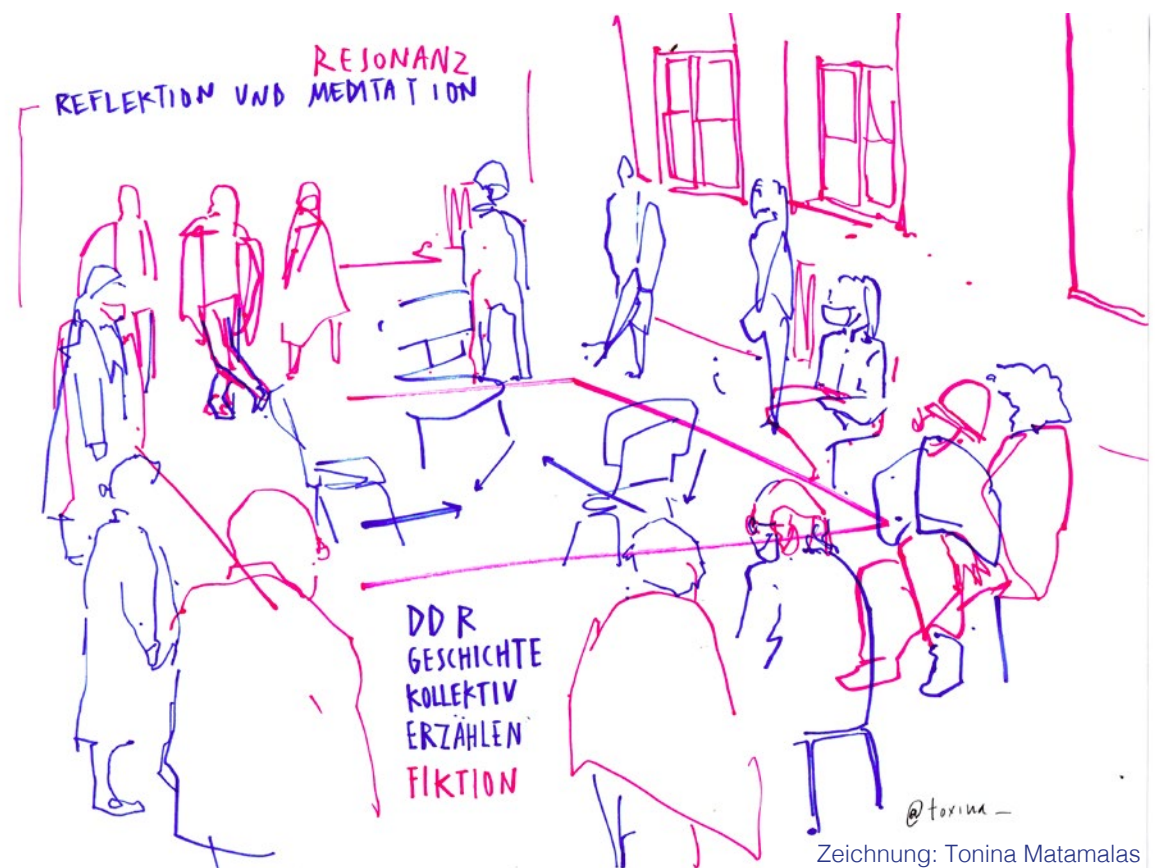 RESONANZ
REFLEKTION UND MEDITATION
DDR
GESCHICHTE
KOLLEKTIV
ERZÄHLEN
FIKTION
@toxina_
Zeichnung: Tonina Matamalas